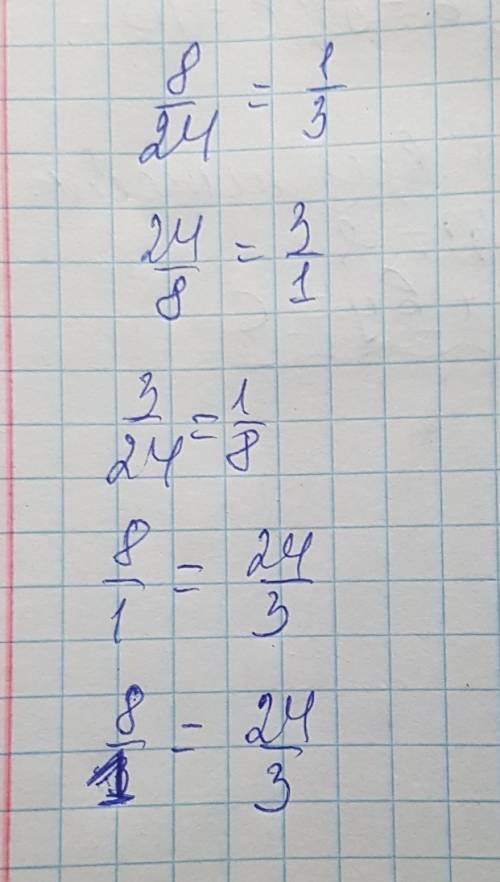 8/24 = 1/3
24/8 = 3/1
3/24 = 1/8
8/1 = 24/3
8/1 = 24/3